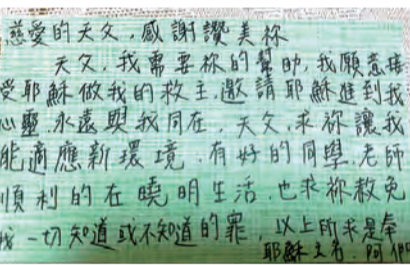 慈愛的天父，感謝讚美祢
天父，我需要祢的幫助，我願意接
受耶穌做我的救主，邀請耶穌進到我
心靈，永遠與我同在，天父，求祢讓我
能適應新環境，有好的同學，老師
順利的在曉明生活，也求祢赦免
我一切知道或不知道的罪，以上所求是奉
耶穌之名，阿們